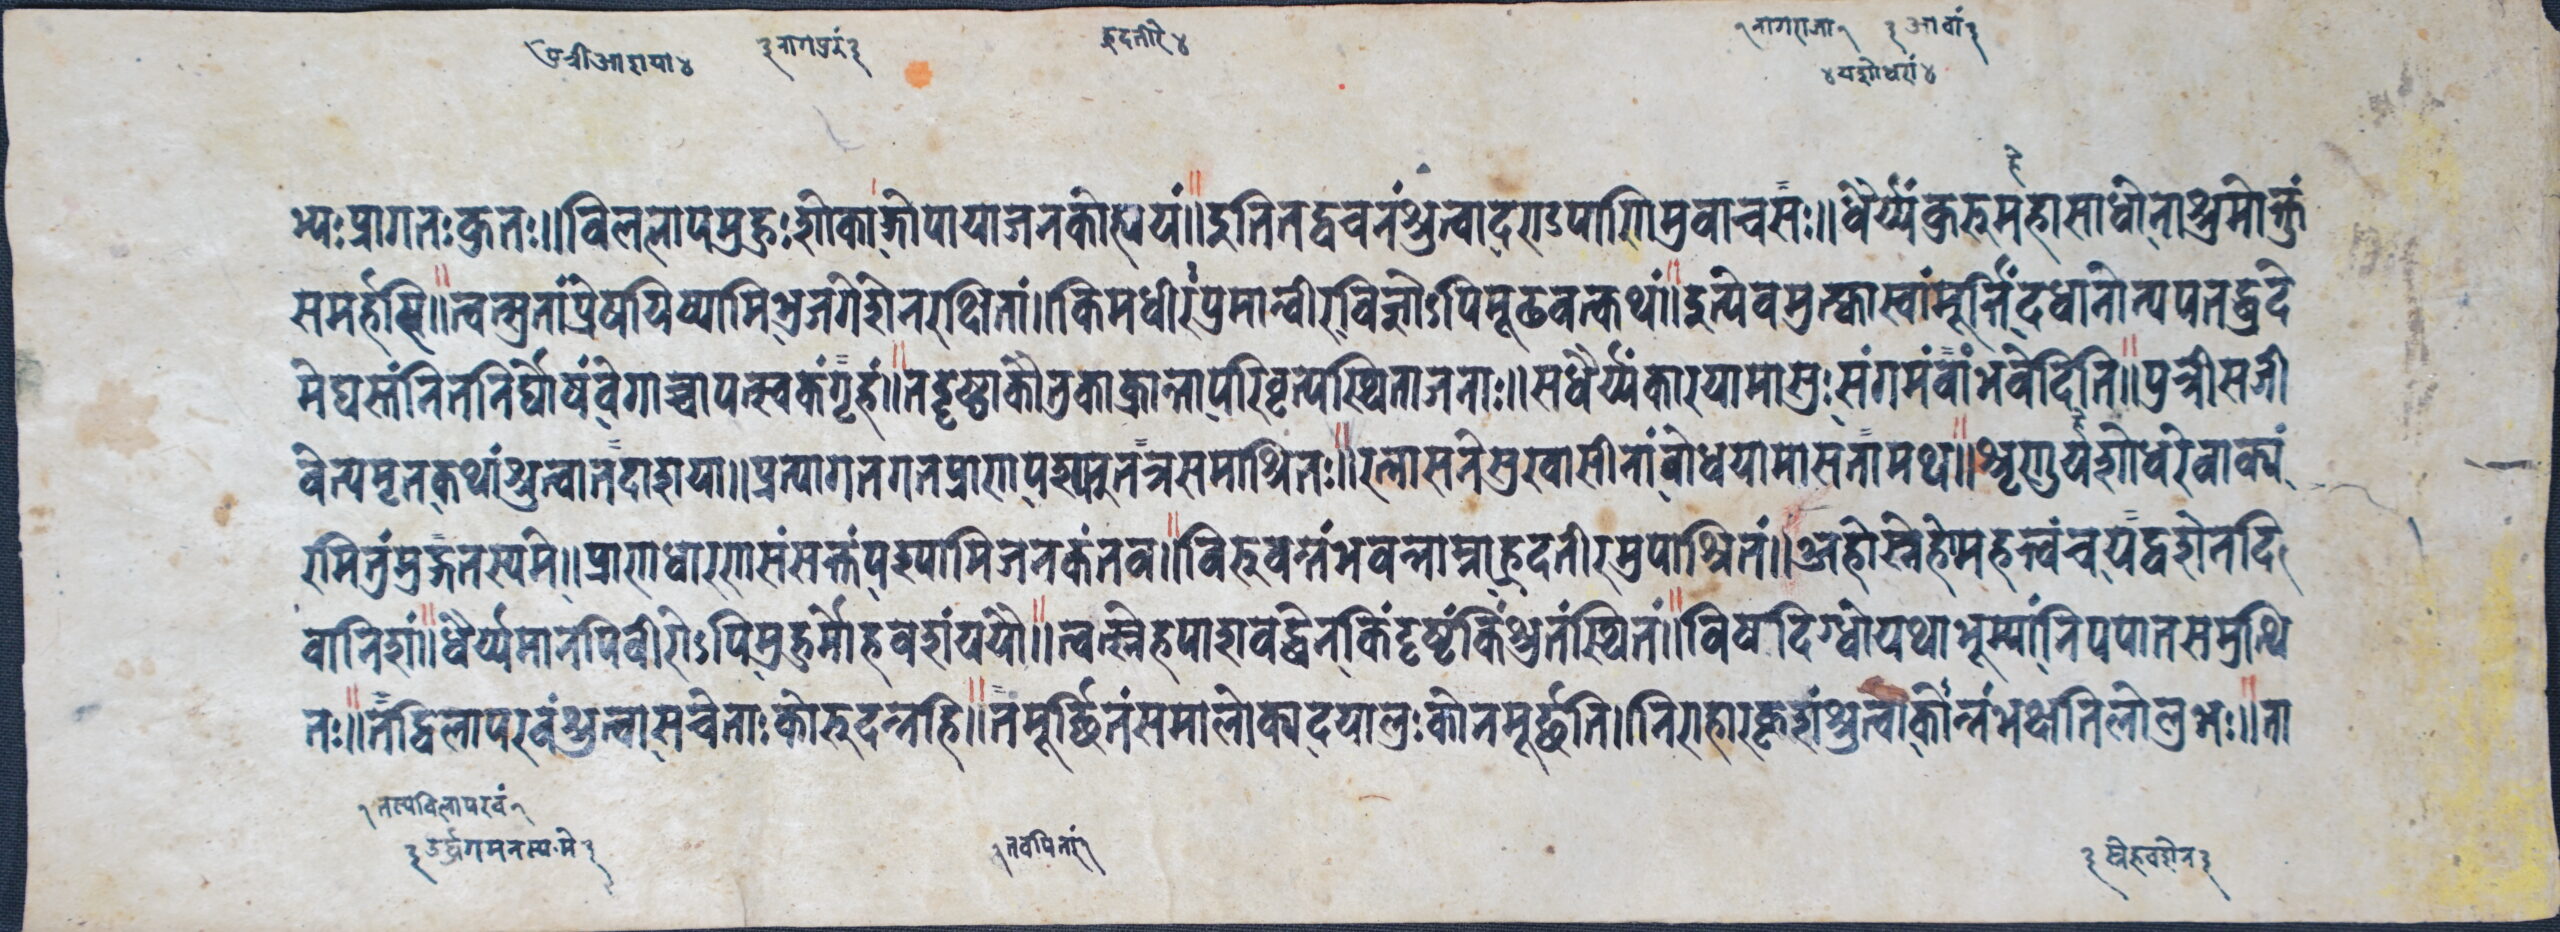 पुत्रीआशया४
३नागपुरं३
ह्रदतीरे४
१नागराजा१ ३आवां३
४यशोधरां४
हे
भ्यः प्रागतः कुतः॥विललाप मुहुः शोकाज्जीपायाजनको ह्ययं॥इति तद्वचनं श्रुत्वा दराऽपाणिमुवाच सः॥धैर्य्यं कुरु महासाधो नाश्रु मोक्तुं
समर्हसि॥त्वत्सुतां प्रेषयिष्यामि भुजगेशेन रक्षितां॥किमधीरं पुमान्वीर विज्ञोऽपि मूढवत्कथां॥इत्येवमुक्त्वा स्वां मूर्त्तिं दधानोत्यपतद्ध्रदे
मेघस्तनितनिर्घोषं वेगाच्चाप त्स्वकं गृहं॥तद्दृष्ट्वा कौतुकाक्रान्ता परिवृत्य स्थिता जनाः॥स धैर्य्यं कारयामासुः संगमं वां भवेदिति॥पुत्री सजी
वेत्यमृतकथां श्रुत्वा तदाशया॥प्रत्यागतगतप्राणा पश्यन्नु तत्र समाश्रितः॥रत्नासने सुखासीनां बोधयामास तामथ॥शृणु यशोधरे वाक्यं
रमितुं मुद्गतस्य मे॥प्राणधारणसंसक्तं पश्यामि जनकं तव॥विरुवन्तं भवन्नाम्ना ह्रदतीरमुपाश्रितं॥अहो स्नेहो महत्त्वं च यद्वशेन दि
वानिशां॥धैर्य्यमानपि वीरोऽपि मुहुर्मोहवशं ययौ॥त्वत्स्नेहपाशवद्धेन किं दृष्टं किं श्रुतं स्थितं॥विषदिग्धो यथा भूम्यां निपपात समुत्थि
तः॥तद्विलापरवं श्रुत्वा सचेताः को रुदन्नहि॥तं मूर्छितं समालोक्य दयालुः को न मूर्छति॥निराहारकृशं श्रुत्वा कोन्नं भक्षति लोलुभः॥ता
१तस्य विलापरवं१
३ऊर्द्ध्वगमनस्य मे३
१तव पितरं१
३स्नेहवशेन३